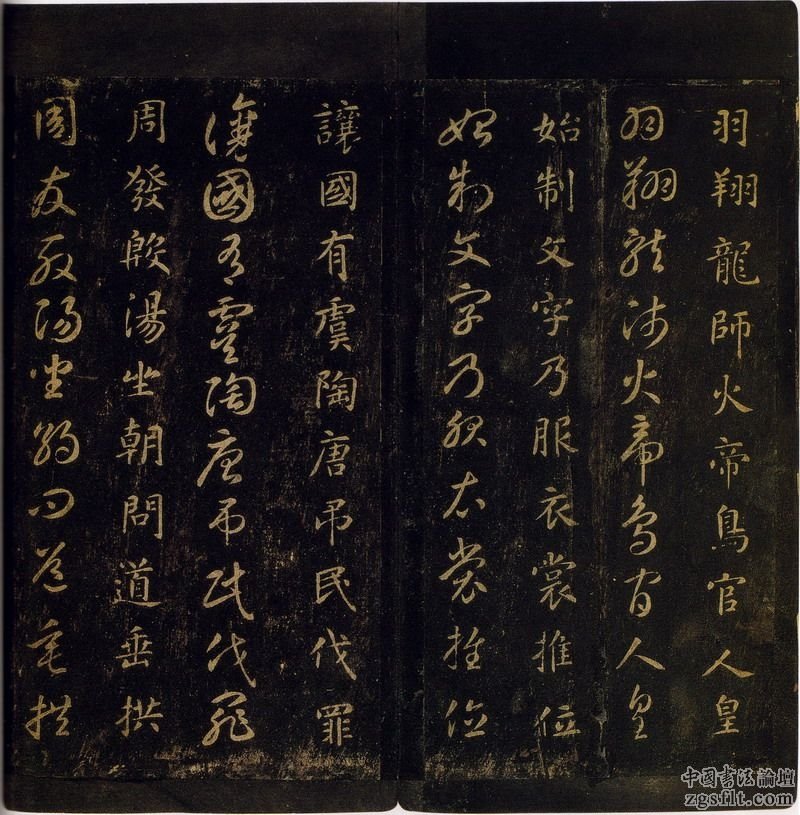 羽翔龍師火帝鳥官人皇
羽翔龍師火帝鳥官人皇
始制文字乃服衣裳推位
始制文字乃服衣裳推位
讓國有虞陶唐吊民伐罪
讓國有虞陶唐吊民伐罪
周發殷湯坐朝問道垂拱
周發殷湯坐朝問道垂拱
中國書法論壇
zgsflt.com